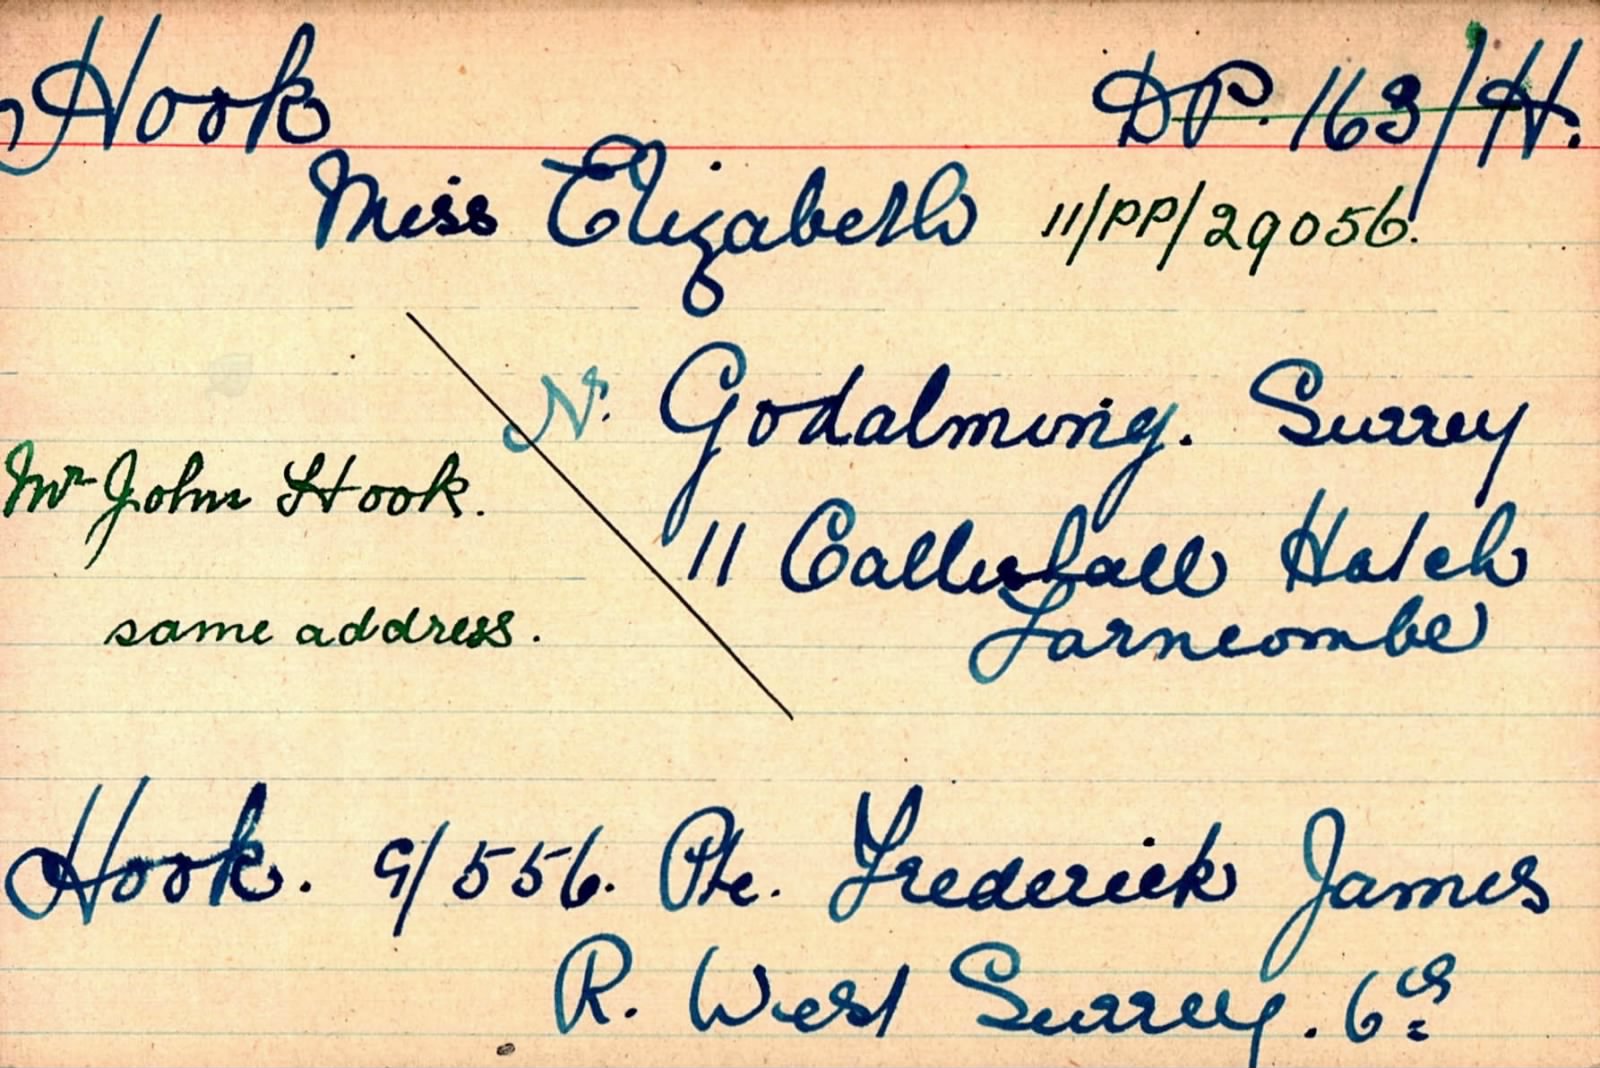 Hook DP. 163/H.
Miss Elizabeth 11/PP/29056.
Nr. Godalming. Surrey
Mr John Hook.
11 Catteshall Hatch
Farncombe
same address.
Hook. G/556. Pte. Frederick James
R. West Surrey. 6